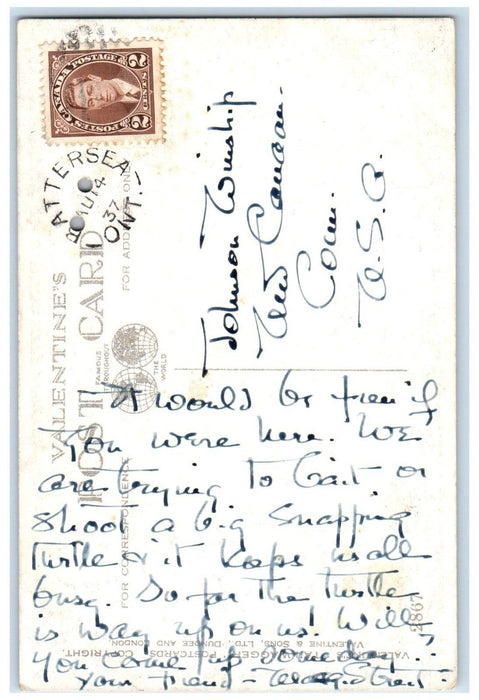 CANADA POSTAGE
POSTES CANADA
2 CENTS 2
BATTERSEA
AU 14
37
ONT.
VALENTINE'S
POST CARD
FAMOUS THROUGHOUT
THE WORLD
FOR ADDRESS ONLY
FOR CORRESPONDENCE
Johnson Winship
New Canaan
Conn.
U.S.A.
It would be fun if
you were here. We
are trying to bait or
shoot a big snapping
turtle & it keeps us all
busy. So far the turtle
is way up on us! Will
you come up some day?
Your friend
VALENTINE & SONS, LTD., DUNDEE AND LONDON
COPYRIGHT.